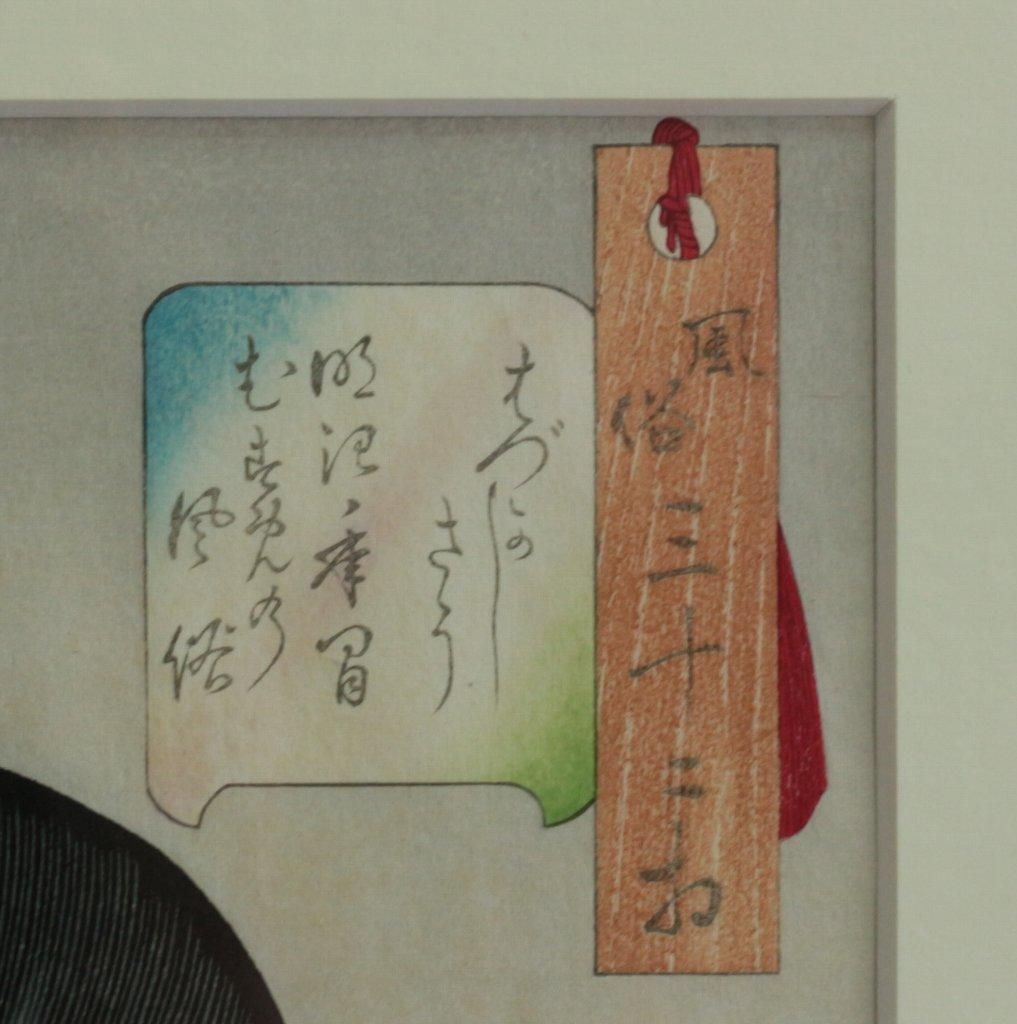 風俗三十二相
はづかし
さう
明治年間
むすめの
風俗